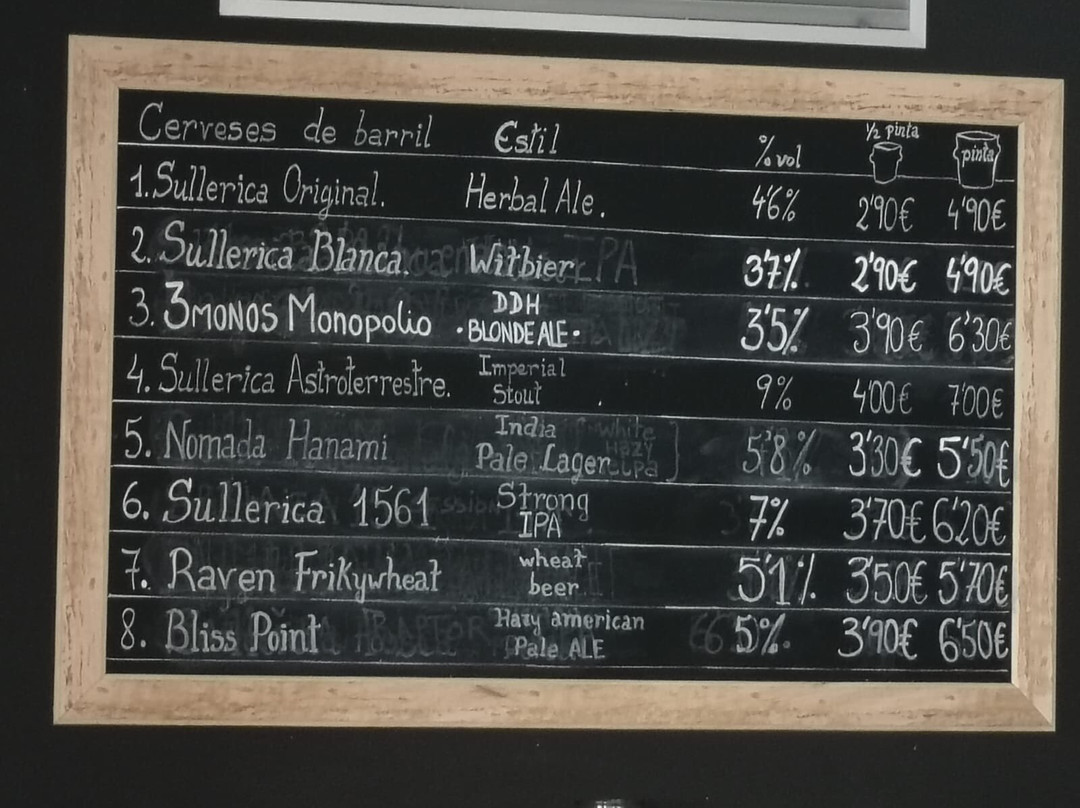 Cerveses de barril Estil % vol ½ pinta pinta
1. Sullerica Original. Herbal Ale. 4'6% 2'90€ 4'90€
2. Sullerica Blanca. Witbier 3'7% 2'90€ 4'90€
3. 3MONOS Monopolio DDH • BLONDE ALE • 3'5% 3'90€ 6'30€
4. Sullerica Astroterrestre. Imperial Stout 9% 4'00€ 7'00€
5. Nomada Hanami India Pale Lager 5'8% 3'30€ 5'50€
6. Sullerica 1561 Strong IPA 7% 3'70€ 6'20€
7. Raven Frikywheat wheat beer 5'1% 3'50€ 5'70€
8. Bliss Point Hazy american Pale ALE 5% 3'90€ 6'50€